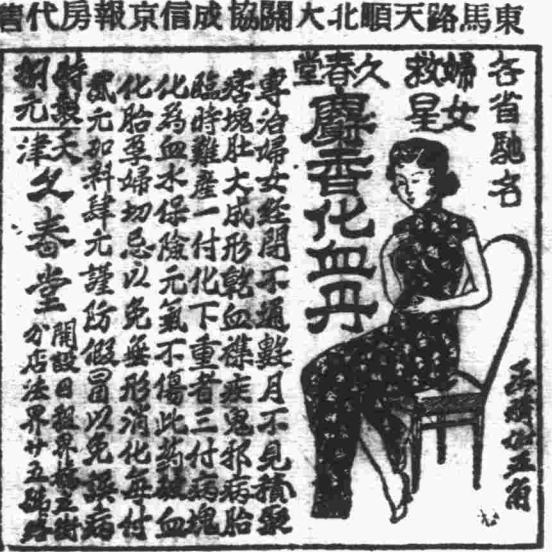 東馬路天順北大關協成信京報房代售
各省馳名
婦女救星
久春堂
麝香化血丹
專治婦女經閉不通數月不見積聚
痞塊肚大成形乾血襍疾鬼邪病胎
臨時難産一付化下重者三付病塊
化為血水保險元氣不傷此药破血
化胎孕婦切忌以免無形消化每付
貳元加料肆元謹防假冒以免誤病
特製捌元
天津久春堂
開設日租界橋立街
分店法界廿五號路
五角